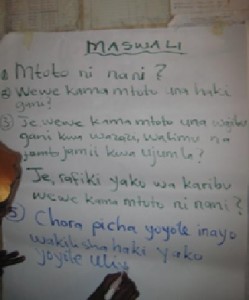 MASWALI
① Mtoto ni nani?
② Wewe kama mtoto una haki
gani?
③ Je, wewe kama mtoto una wajibu
gani kwa wazazi, walimu na
jamii kwa ujumla?
Je, rafiki yako wa karibu
wewe kama mtoto ni nani?
⑤ Chora picha yoyote inayo
wakilisha haki yako
yoyote